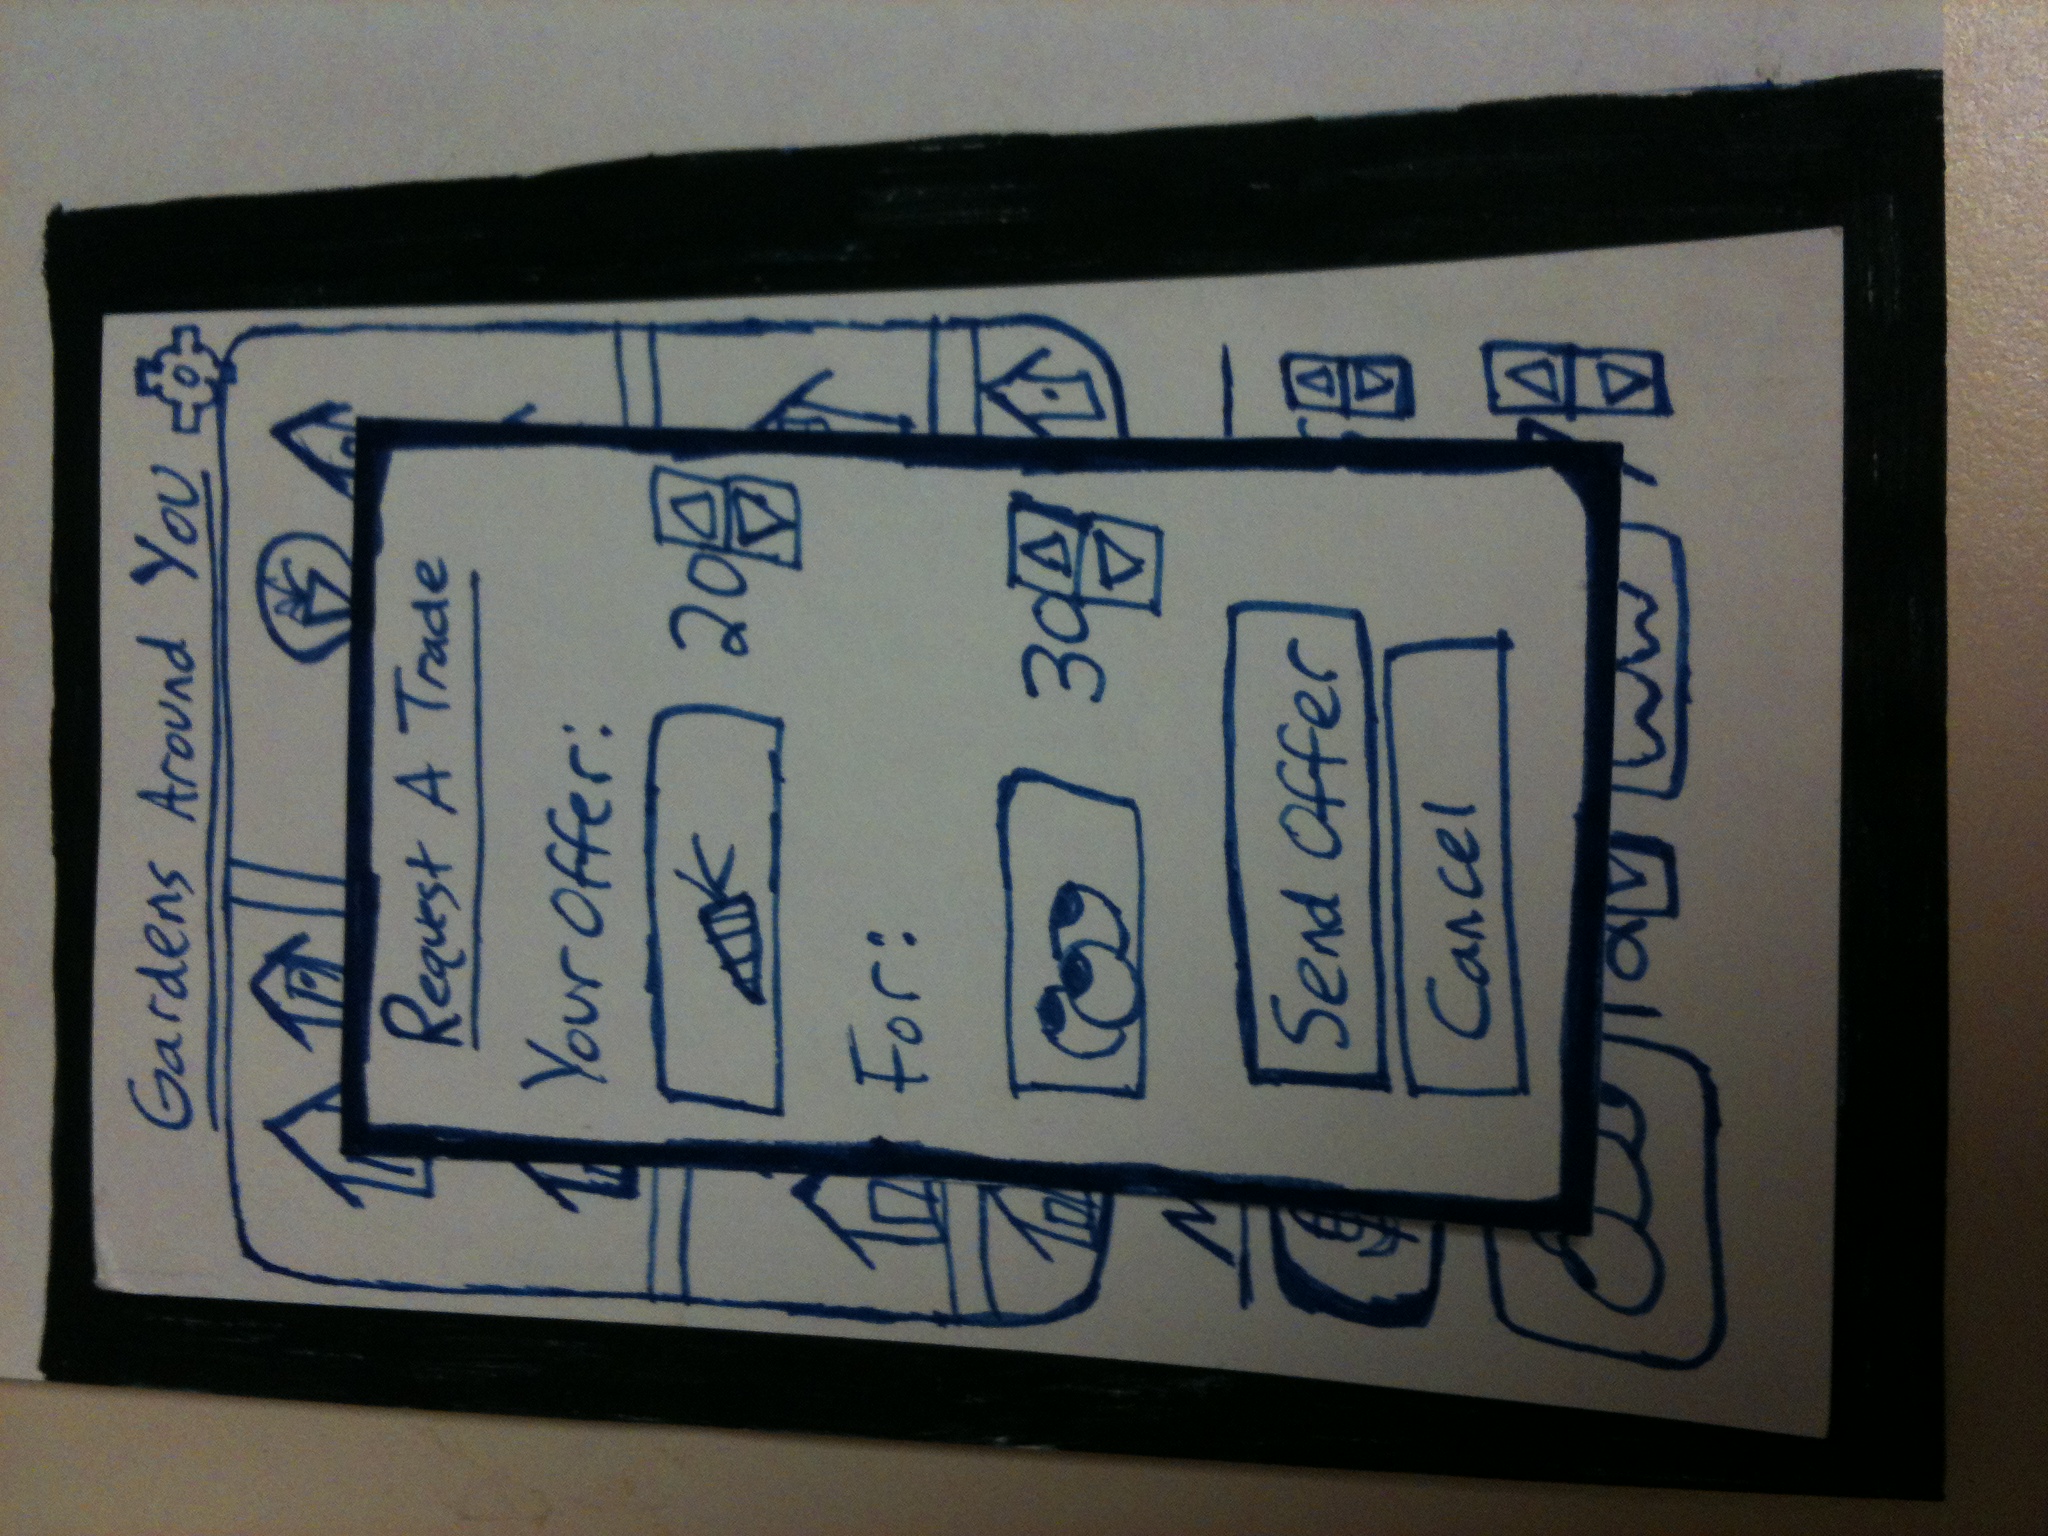 Gardens Around You
Request A Trade
Your Offer:
20
For:
30
Send Offer
Cancel